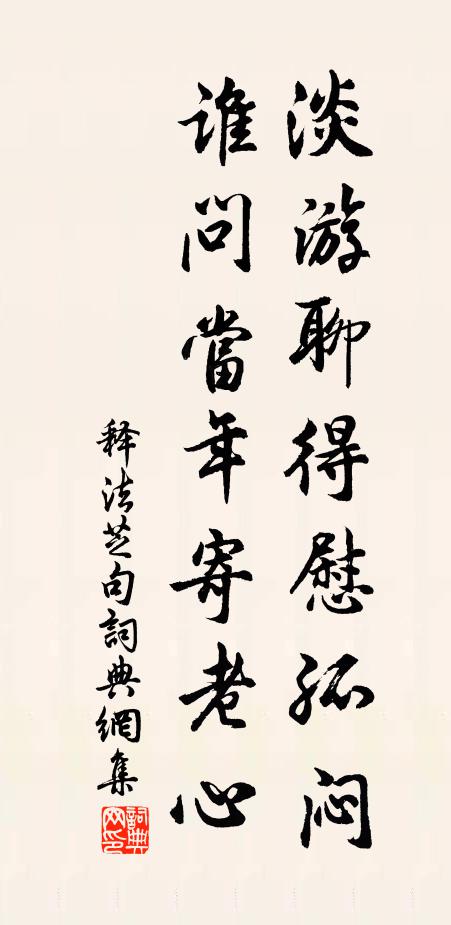 淡游聊得慰孤闷
谁问當年寄老心
释法芝句詞典網集
詞典
网印